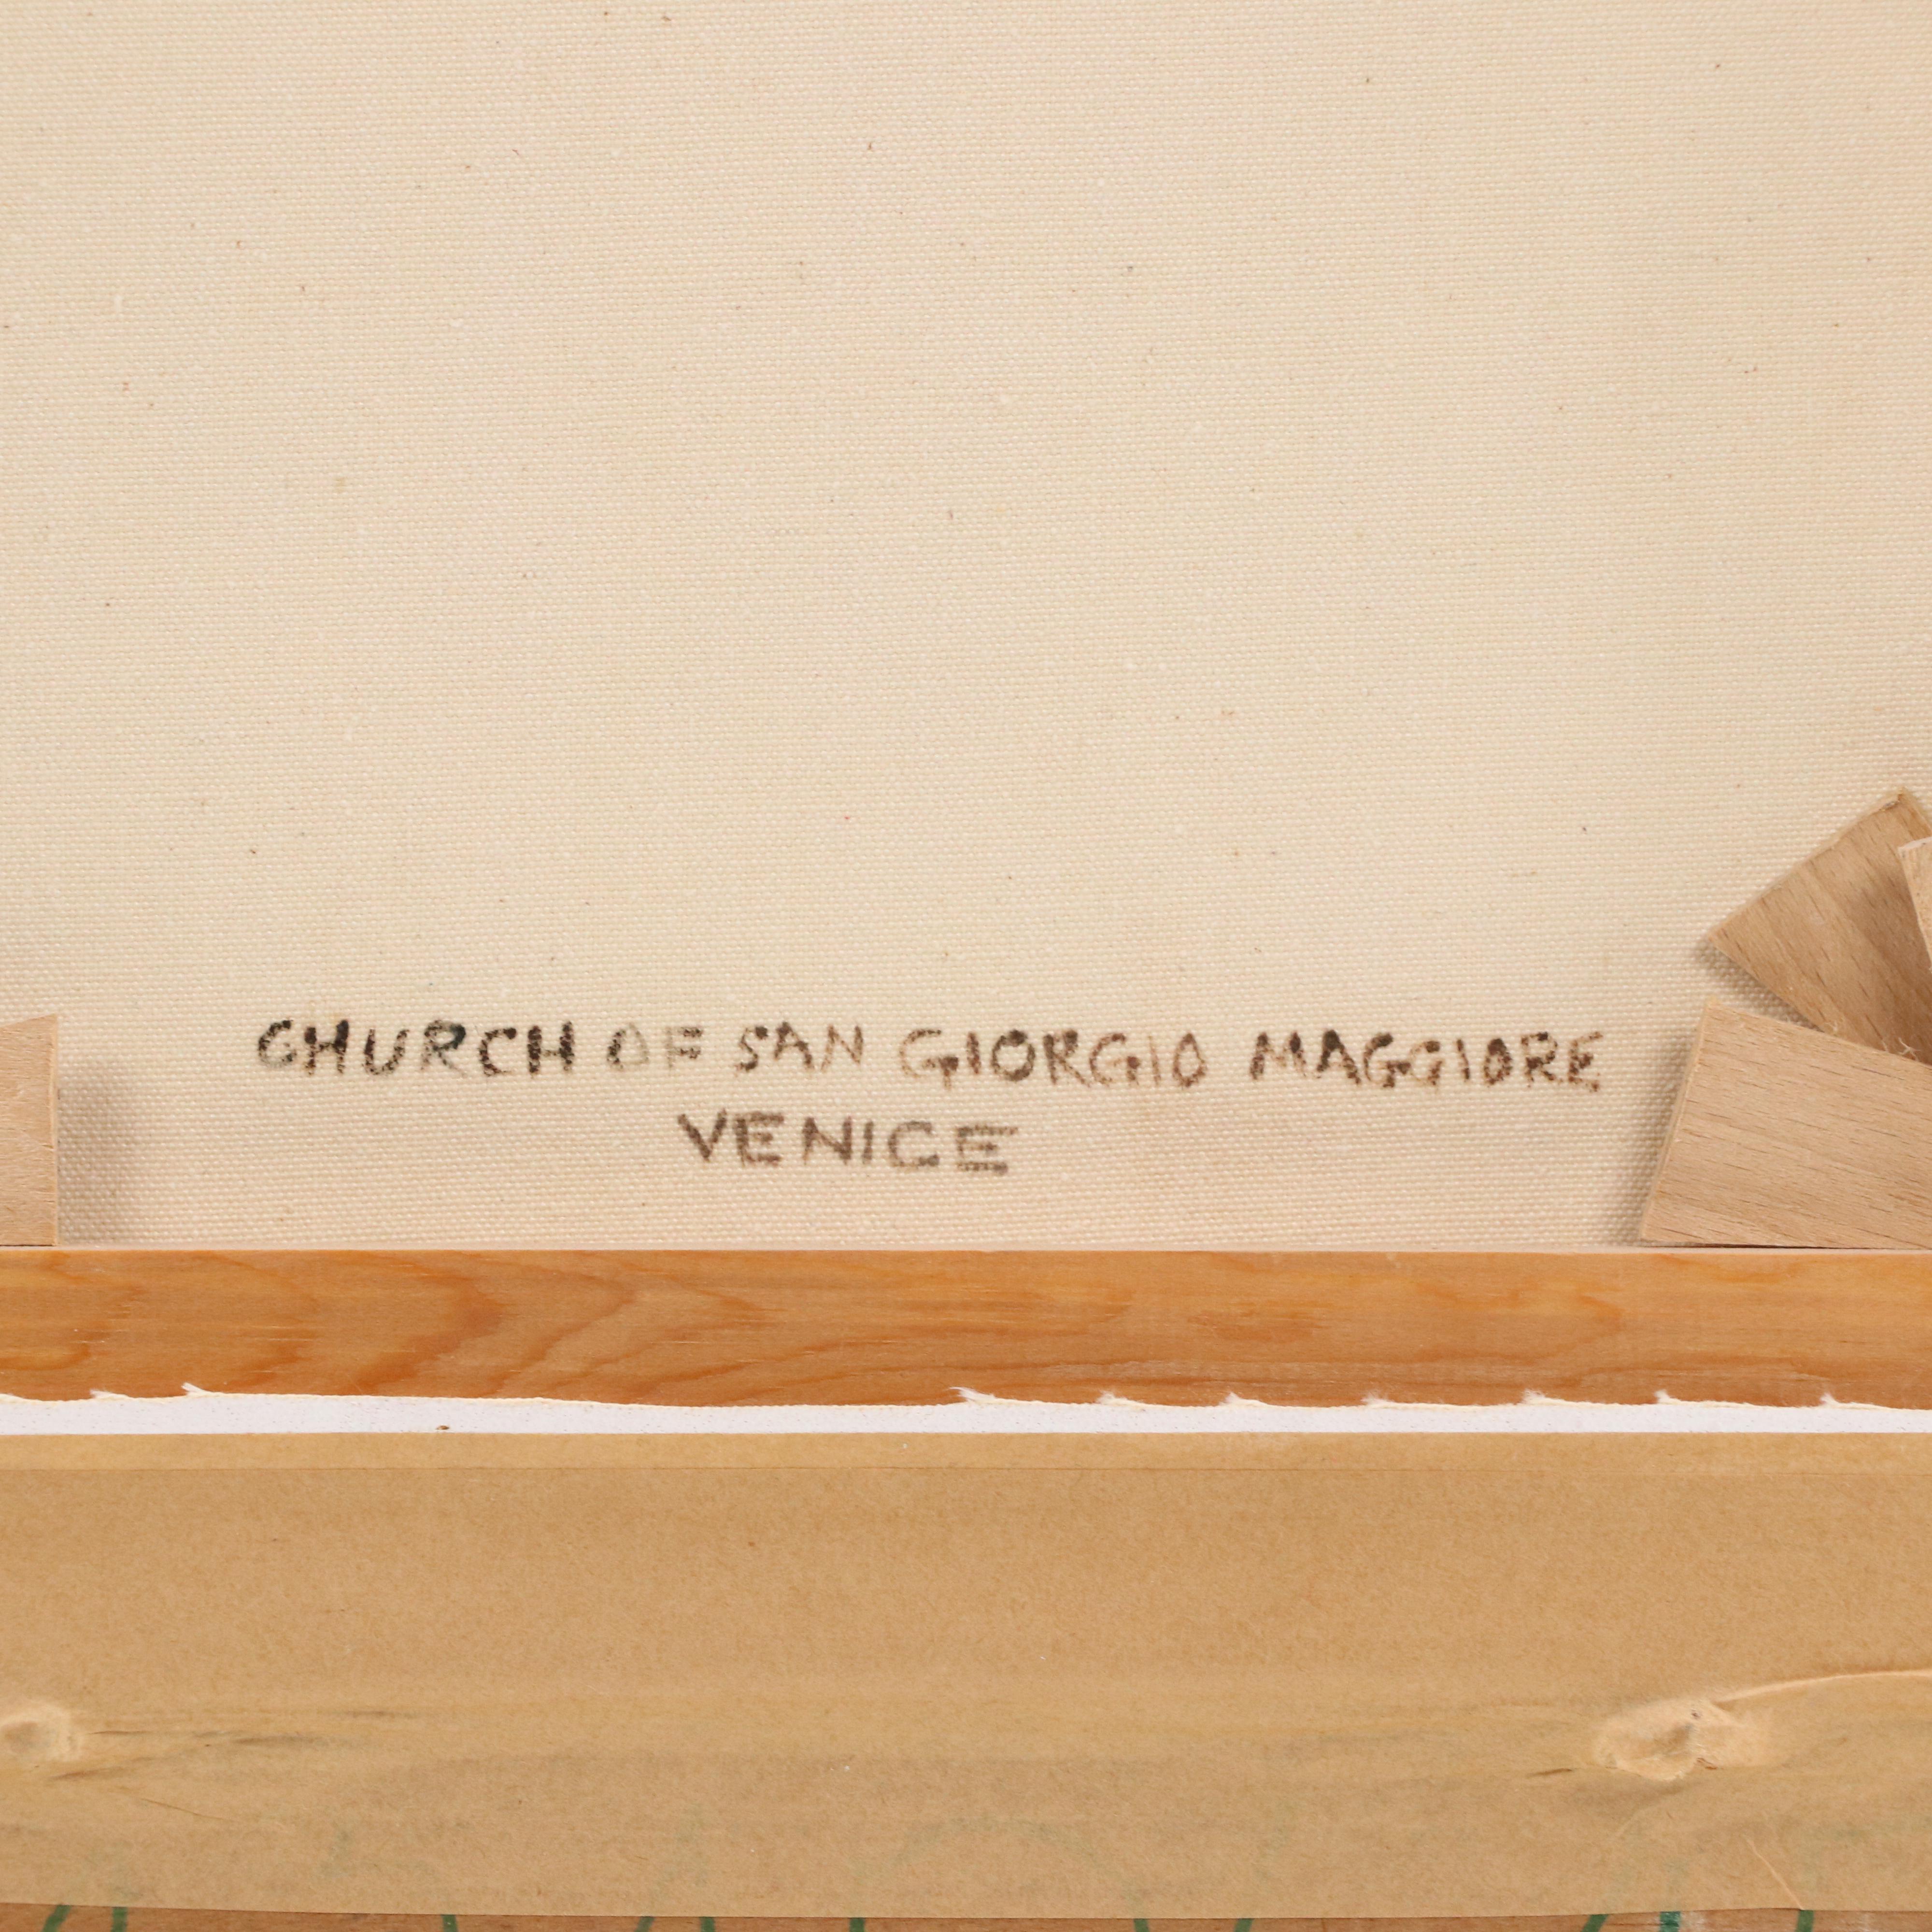 CHURCH OF SAN GIORGIO MAGGIORE
VENICE